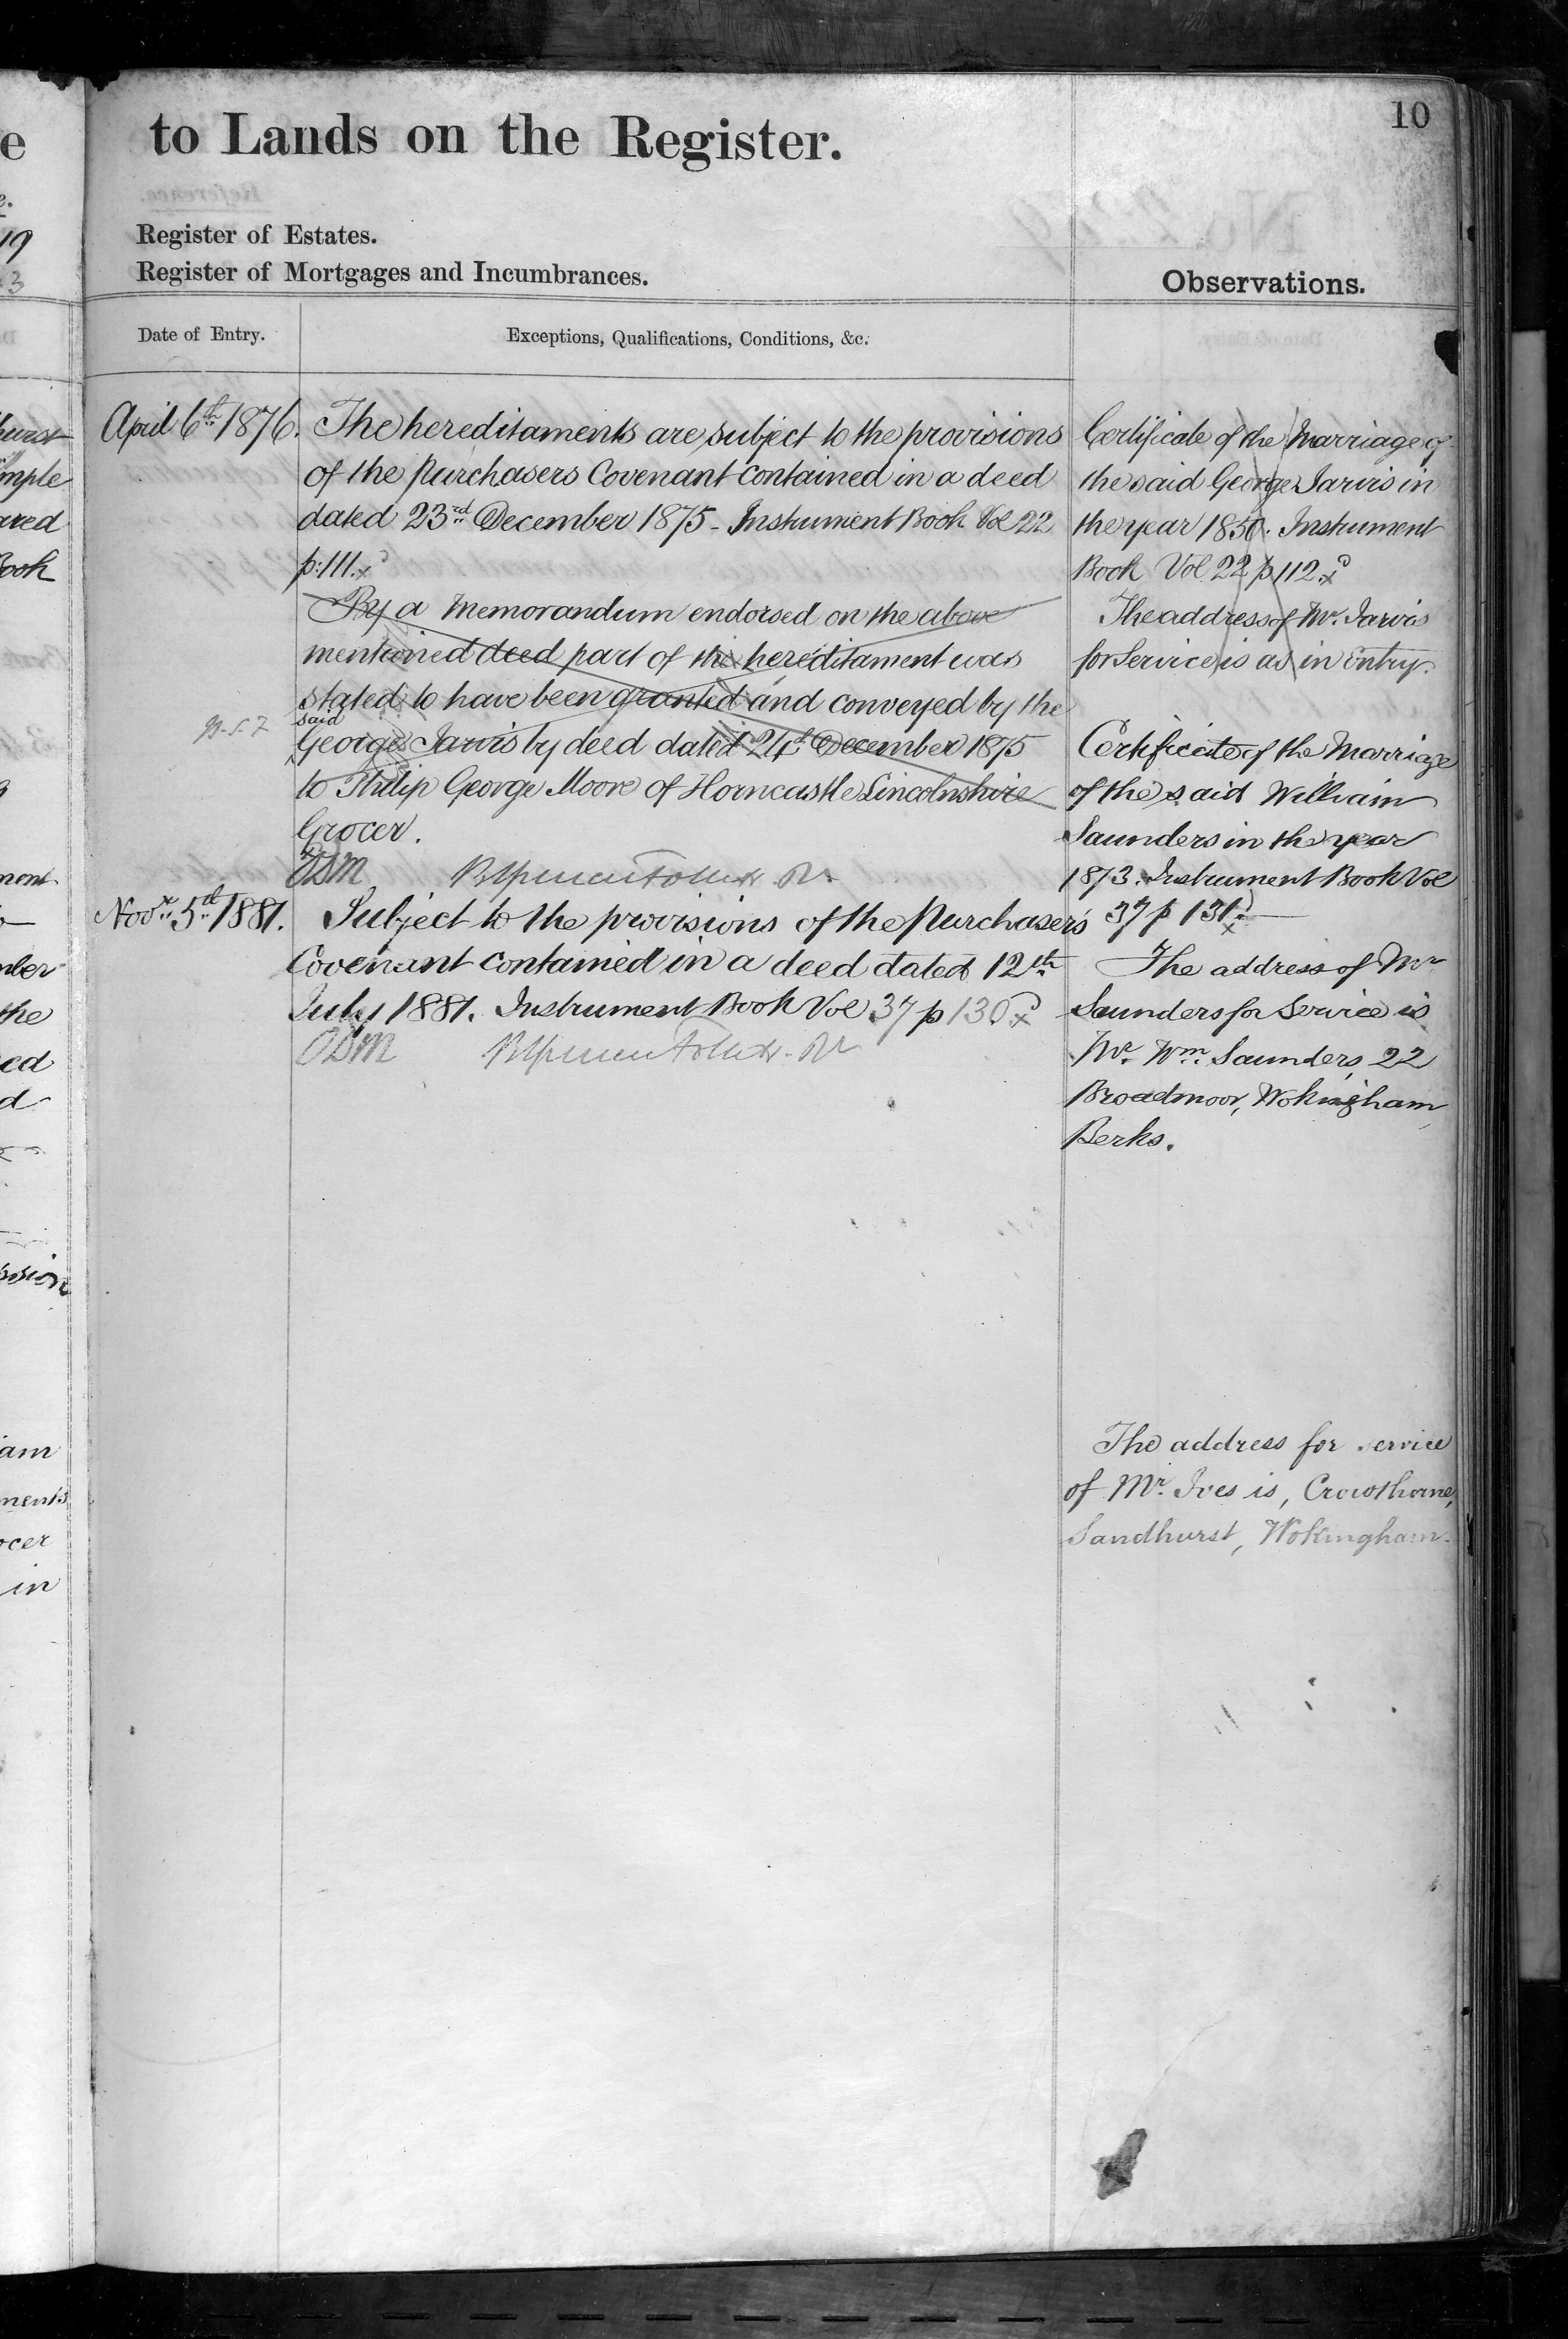 10
to Lands on the Register.
Register of Estates.
Register of Mortgages and Incumbrances.
Observations.
Date of Entry.
Exceptions, Qualifications, Conditions, &c.
April 6th 1876.
The hereditaments are subject to the provisions
of the Purchasers Covenant contained in a deed
dated 23rd December 1875 - Instrument Book Vol 22
p: 111.
By a Memorandum endorsed on the above
mentioned deed part of the hereditament was
stated to have been granted and conveyed by the
said
George Jarvis by deed dated 24th December 1875
to Philip George Moore of Horncastle Lincolnshire
Grocer.
Novr. 5th 1881.
Subject to the provisions of the Purchaser's
Covenant contained in a deed dated 12th
July 1881. Instrument Book Vol 37 p 130
Certificate of the Marriage of
the said George Jarvis in
the year 1850. Instrument
Book Vol 22 p 112.
The address of Mr. Jarvis
for Service is as in Entry.
Certificate of the Marriage
of the said William
Saunders in the year
1873. Instrument Book Vol
37 p 131
The address of Mr
Saunders for Service is
Mr. Wm. Saunders, 22
Broadmoor, Wokingham,
Berks.
The address for service
of Mr. Ives is, Crowthorne,
Sandhurst, Wokingham.